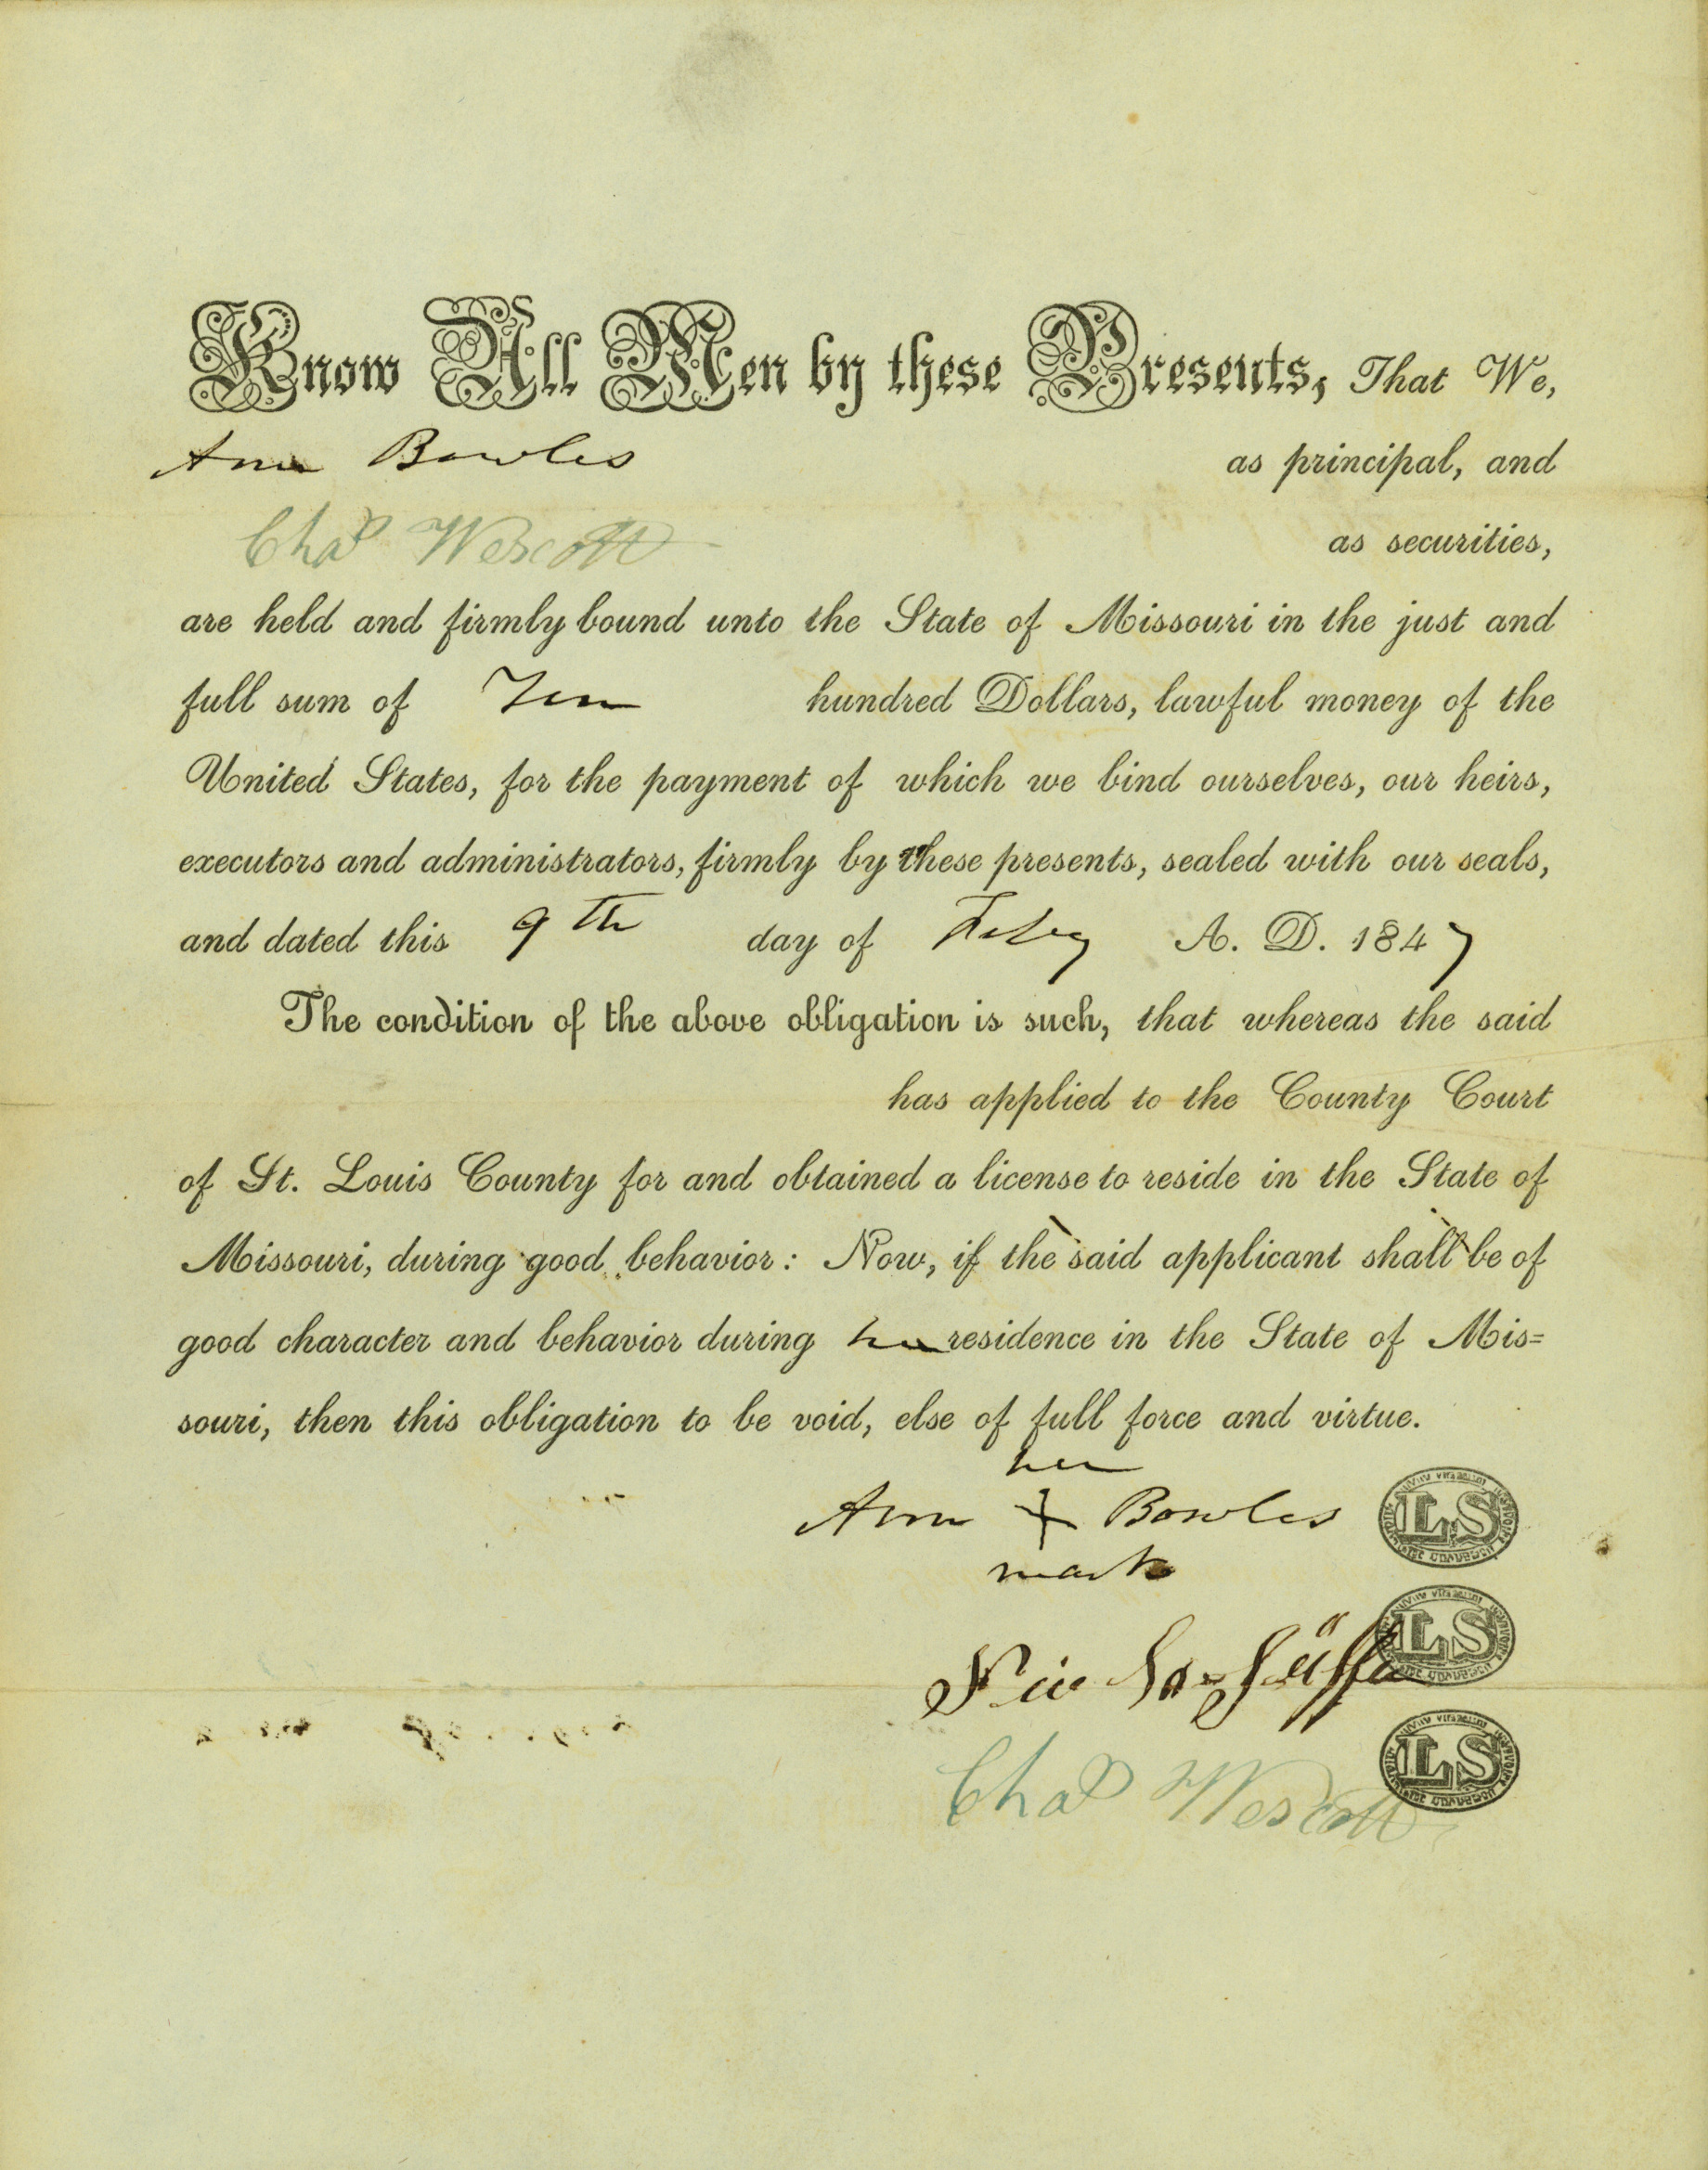 Know All Men by these Presents, That We,
Ann Bowles as principal, and
Chas Wescott as securities,
are held and firmly bound unto the State of Missouri in the just and
full sum of Ten hundred Dollars, lawful money of the
United States, for the payment of which we bind ourselves, our heirs,
executors and administrators, firmly by these presents, sealed with our seals,
and dated this 9th day of Feby A. D. 1847
The condition of the above obligation is such, that whereas the said
has applied to the County Court
of St. Louis County for and obtained a license to reside in the State of
Missouri, during good behavior: Now, if the said applicant shall be of
good character and behavior during her residence in the State of Mis=
souri, then this obligation to be void, else of full force and virtue.
her
Ann + Bowles LS
mark
LS
Chas Wescott LS